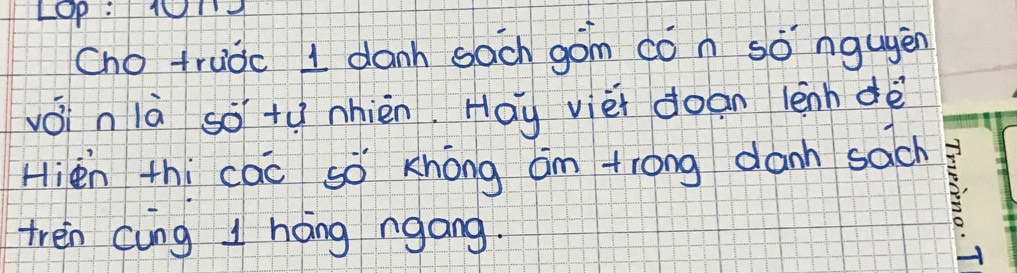 Lớp: 10A5
Cho trước 1 danh sách gồm có n số nguyên
với n là số tự nhiên. Hãy viết đoạn lệnh để
Hiển thị các số không âm trong danh sách
trên cùng 1 hàng ngang.
Trường: T